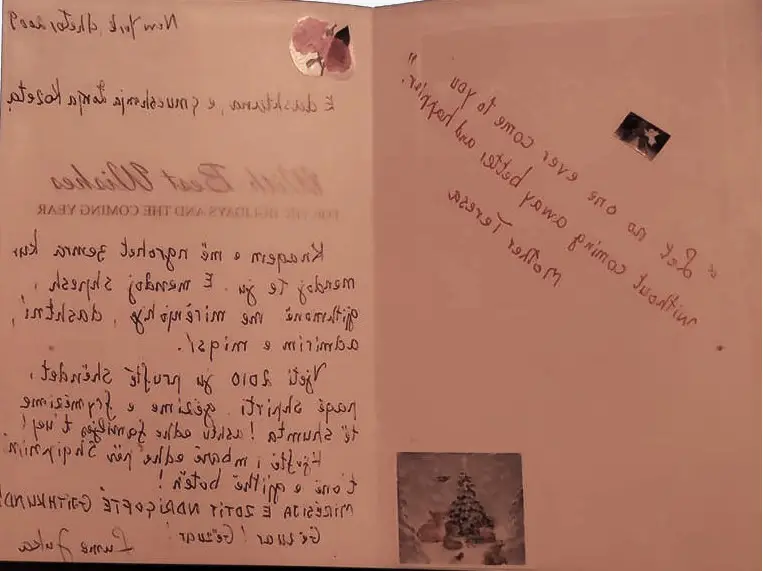 New York, dhetor 2009
E dashtuna, e çmueshmja Zonja Kozeta,
With Best Wishes
FOR THE HOLIDAYS AND THE COMING YEAR
Knaqem e më ngrohet zemra kur
mendoj te ju. E mendoj shpesh,
gjithmonë me mirënjohje, dashtni,
admirim e miqsi.
Vjeti 2010 ju pruftë shëndet,
paqë shpirti, gëzime e frymëzime
të shumta! Ashtu edhe familjes t'uej!
Kjoftë i mbarë edhe për Shqipninë
t'onë e gjithë botën!
MIRËSIJA E ZOTIT NDRIÇOFTË GJITHKUND!
Gëzuar! Gëzuar!
Luma Juka
"Let no one ever come to you
without coming away better and happier."
Mother Teresa